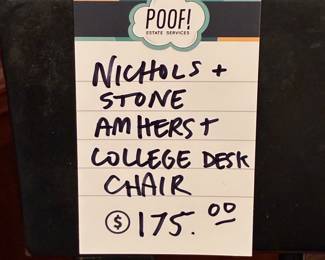 POOF!
ESTATE SERVICES
NICHOLS +
STONE
AMHERST
COLLEGE DESK
CHAIR
$ 175.00